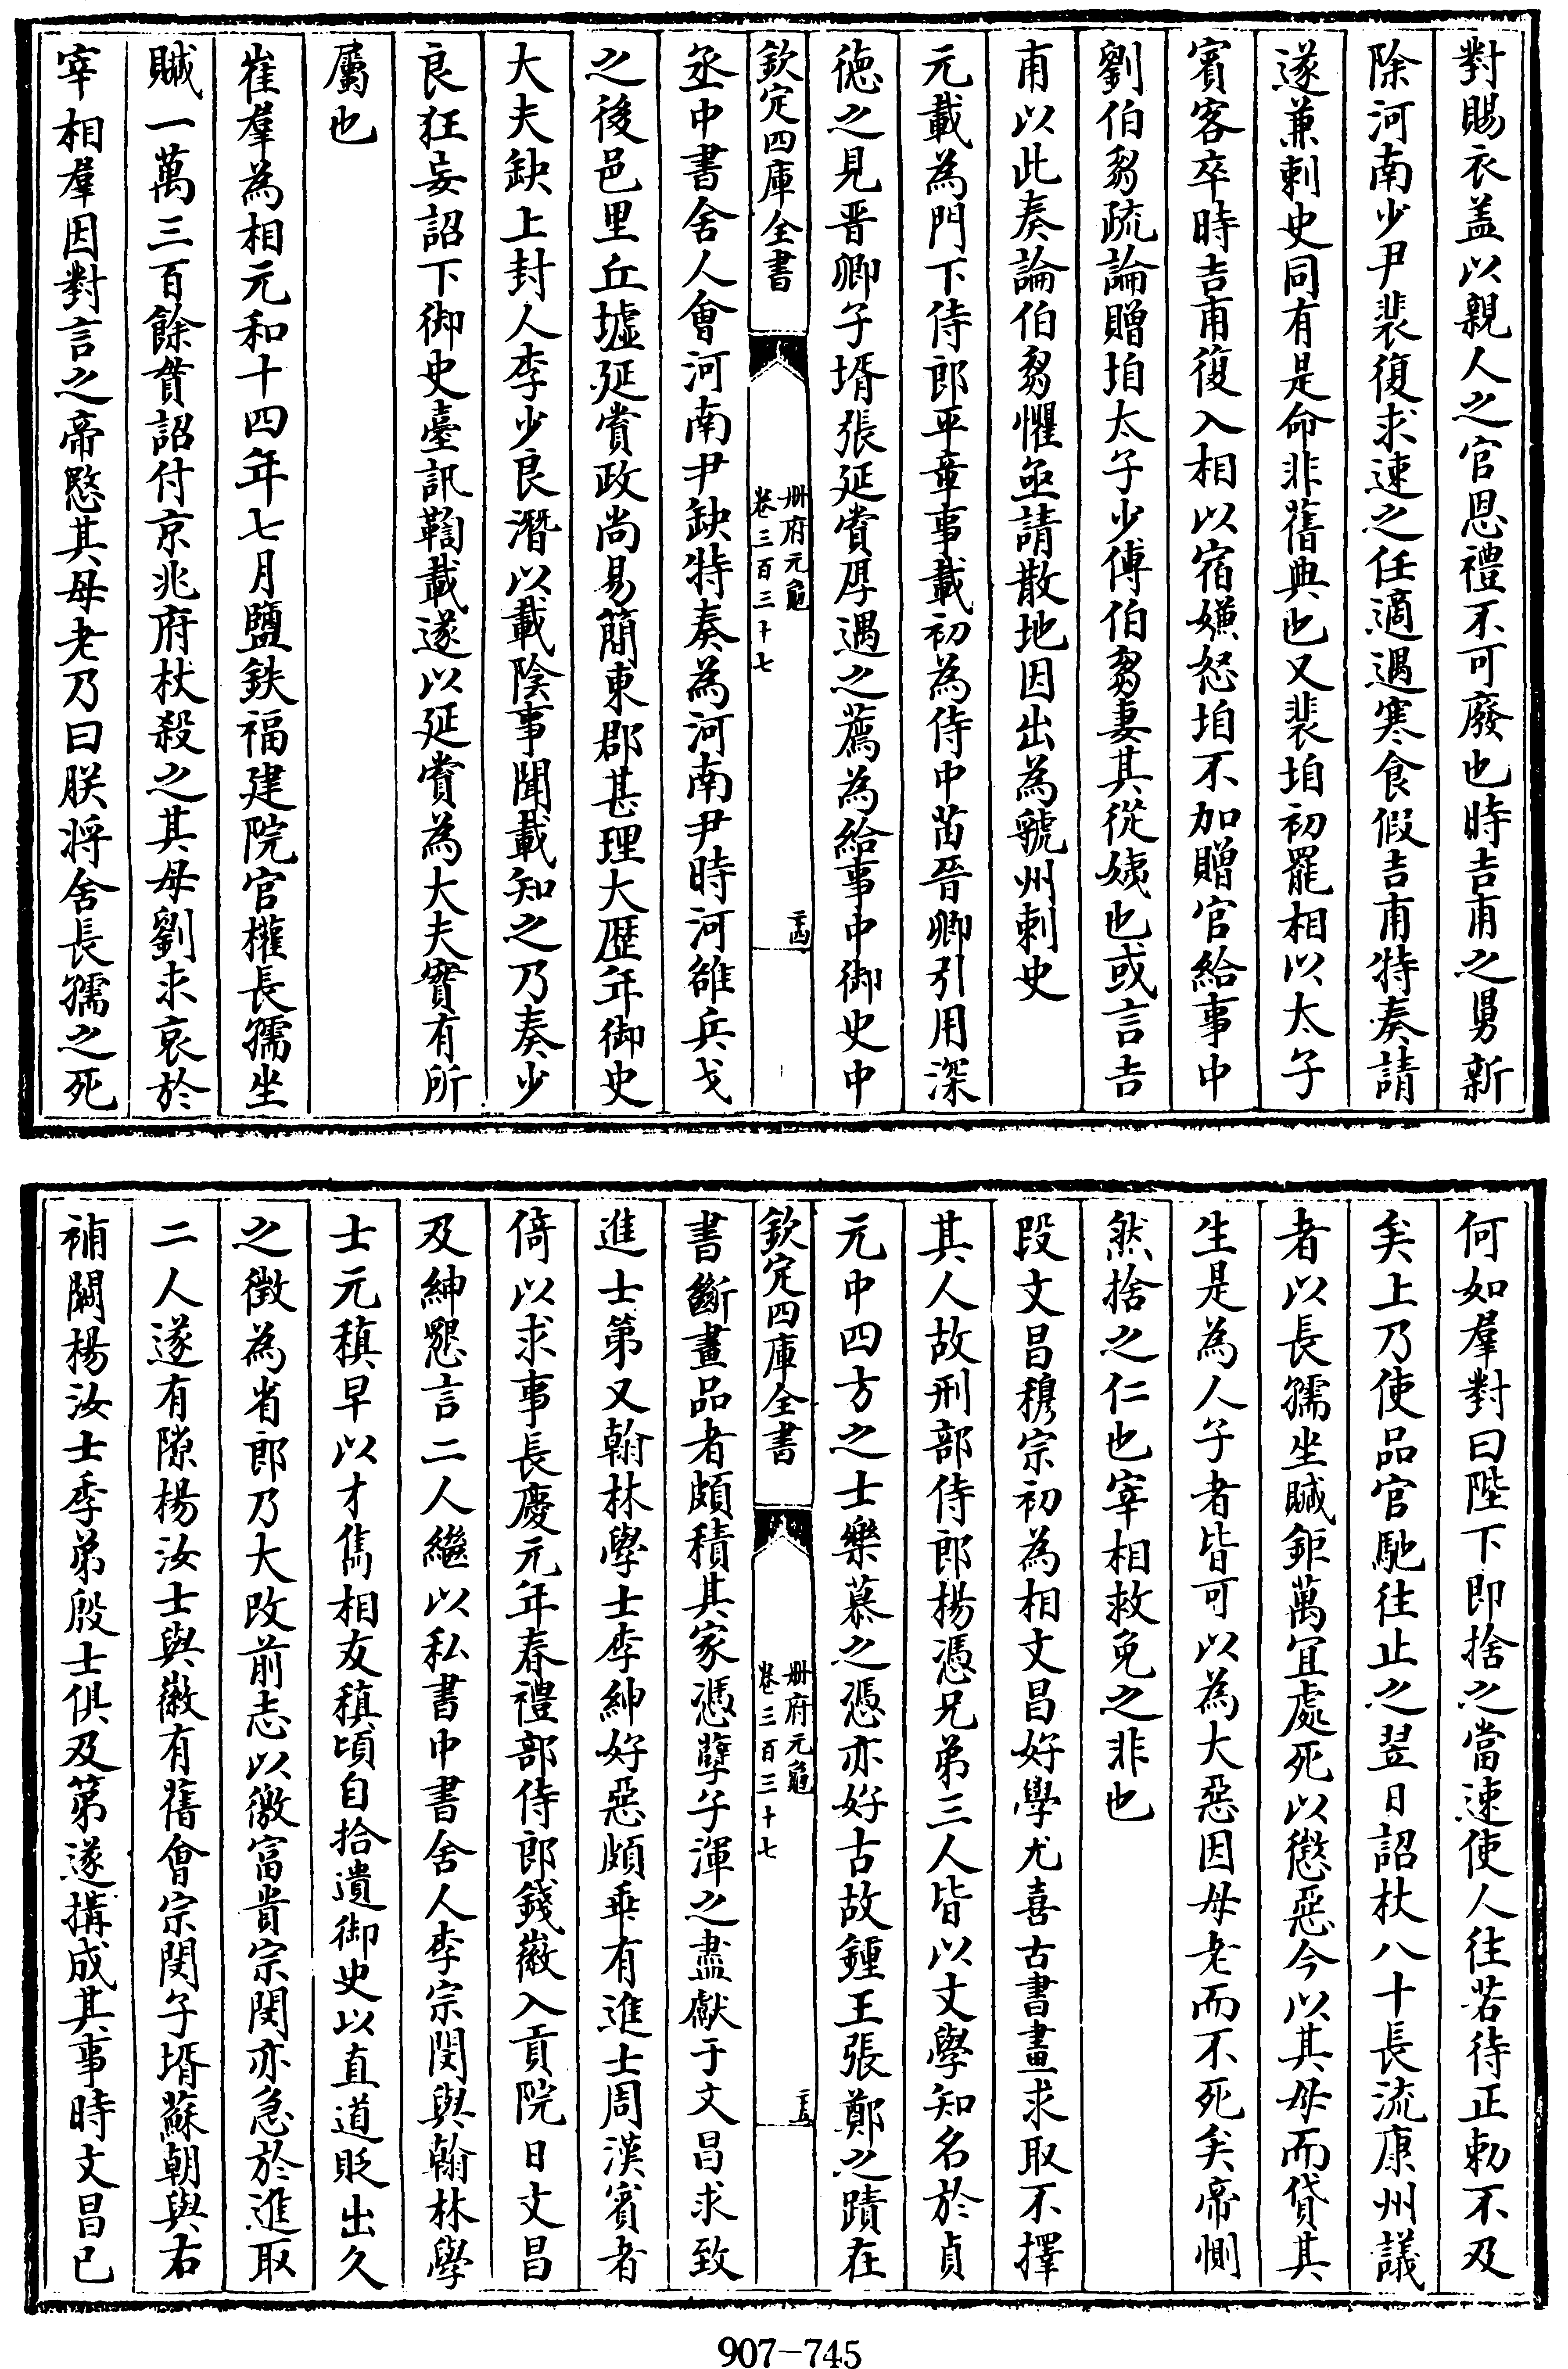 對賜衣盖以親人之官恩禮不可廢也時吉甫之舅新
除河南少尹裴復求速之任適遇寒食假吉甫特奏請
遂兼刺史同有是命非舊典也又裴垍初罷相以太子
賓客卒時吉甫復入相以宿嫌怒垍不加贈官給事中
劉伯芻疏論贈垍太子少傅伯芻妻其從姨也或言吉
甫以此奏論伯芻懼亟請散地因出為虢州刺史
元載為門下侍郎平章事載初為侍中苗晉卿引用深
徳之見晋卿子壻張延賞厚遇之薦為給事中御史中
欽定四庫全書
冊府元龜
卷三百三十七
二十四
丞中書舍人會河南尹缺特奏為河南尹時河雒兵戈
之後邑里丘墟延賞政尚易簡東郡甚理大歴年御史
大夫缺上封人李少良潛以載陰事聞載知之乃奏少
良狂妄詔下御史臺訊鞫載遂以延賞為大夫實有所
屬也
崔羣為相元和十四年七月鹽鉄福建院官權長孺坐
贓一萬三百餘貫詔付京兆府杖殺之其母劉求哀於
宰相羣因對言之帝愍其母老乃曰朕將舍長孺之死
何如羣對曰陛下即捨之當速使人往若待正勅不及
矣上乃使品官馳往止之翌日詔杖八十長流康州議
者以長孺坐贓鉅萬宜處死以懲惡今以其母而貸其
生是為人子者皆可以為大惡因母老而不死矣帝惻
然捨之仁也宰相救免之非也
段文昌穆宗初為相文昌好學尤喜古書畫求取不擇
其人故刑部侍郎楊憑兄弟三人皆以文學知名於貞
元中四方之士樂慕之憑亦好古故鍾王張鄭之蹟在
欽定四庫全書
冊府元龜
卷三百三十七
二十五
書斷畫品者頗積其家憑孽子渾之盡獻于文昌求致
進士第又翰林學士李紳好惡頗乖有進士周漢賓者
倚以求事長慶元年春禮部侍郎錢徽入貢院日文昌
及紳懇言二人繼以私書中書舍人李宗閔與翰林學
士元稹早以才雋相友稹頃自拾遺御史以直道貶出久
之徵為省郎乃大改前志以徼富貴宗閔亦急於進取
二人遂有隙楊汝士與徽有舊會宗閔子壻蘇朝與右
補闕楊汝士季弟殷士俱及第遂搆成其事時文昌已
907-745